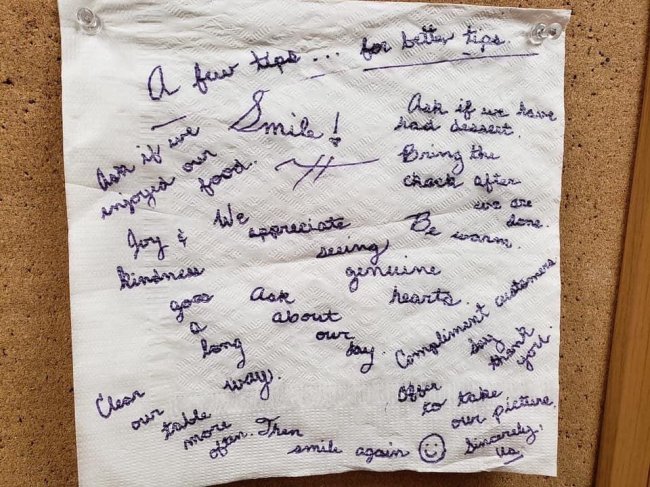 A few tips... for better tips.
Smile!
Ask if we
enjoyed our
food.
Ask if we have
had dessert.
Bring the
check after
we are
done.
Be warm.
Joy &
kindness
goes
a
long
way.
We
appreciate
seeing
genuine
hearts.
Ask
about
our
day.
Compliment customers
Say
thank
you.
Clear
our
table
more
often. Then
smile again
Offer
to take
our picture.
Sincerely,
us